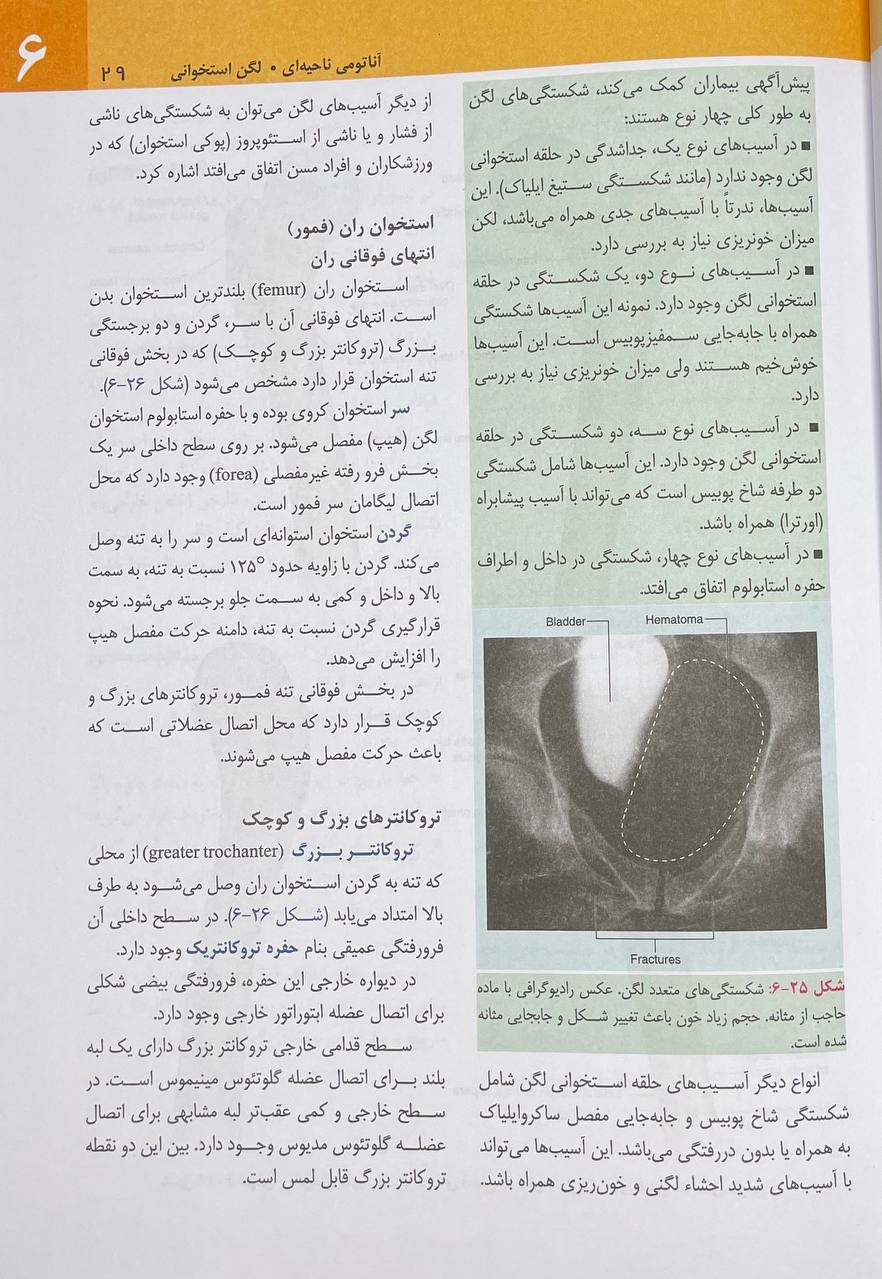 ۶
آناتومی ناحیه‌ای • لگن استخوانی ۲۹
پیش‌آگهی بیماران کمک می‌کند، شکستگی‌های لگن
به طور کلی چهار نوع هستند:
■ در آسیب‌های نوع یک، جداشدگی در حلقه استخوانی
لگن وجود ندارد (مانند شکستگی ستیغ ایلیاک). این
آسیب‌ها، ندرتاً با آسیب‌های جدی همراه می‌باشد، لکن
میزان خونریزی نیاز به بررسی دارد.
■ در آسیب‌های نوع دو، یک شکستگی در حلقه
استخوانی لگن وجود دارد. نمونه این آسیب‌ها شکستگی
همراه با جابه‌جایی سمفیزپوبیس است. این آسیب‌ها
خوش‌خیم هستند ولی میزان خونریزی نیاز به بررسی
دارد.
■ در آسیب‌های نوع سه، دو شکستگی در حلقه
استخوانی لگن وجود دارد. این آسیب‌ها شامل شکستگی
دو طرفه شاخ پوبیس است که می‌تواند با آسیب پیشابراه
(اورترا) همراه باشد.
■ در آسیب‌های نوع چهار، شکستگی در داخل و اطراف
حفره استابولوم اتفاق می‌افتد.
Bladder Hematoma
Fractures
شکل ۲۵-۶: شکستگی‌های متعدد لگن. عکس رادیوگرافی با ماده
حاجب از مثانه. حجم زیاد خون باعث تغییر شکل و جابجایی مثانه
شده است.
انواع دیگر آسیب‌های حلقه استخوانی لگن شامل
شکستگی شاخ پوبیس و جابه‌جایی مفصل ساکروایلیاک
به همراه یا بدون دررفتگی می‌باشد. این آسیب‌ها می‌تواند
با آسیب‌های شدید احشاء لگنی و خون‌ریزی همراه باشد.
از دیگر آسیب‌های لگن می‌توان به شکستگی‌های ناشی
از فشار و یا ناشی از استئوپروز (پوکی استخوان) که در
ورزشکاران و افراد مسن اتفاق می‌افتد اشاره کرد.
استخوان ران (فمور)
انتهای فوقانی ران
استخوان ران (femur) بلندترین استخوان بدن
است. انتهای فوقانی آن با سر، گردن و دو برجستگی
بزرگ (تروکانتر بزرگ و کوچک) که در بخش فوقانی
تنه استخوان قرار دارد مشخص می‌شود (شکل ۲۶-۶).
سر استخوان کروی بوده و با حفره استابولوم استخوان
لگن (هیپ) مفصل می‌شود. بر روی سطح داخلی سر یک
بخش فرو رفته غیرمفصلی (forea) وجود دارد که محل
اتصال لیگامان سر فمور است.
گردن استخوان استوانه‌ای است و سر را به تنه وصل
می‌کند. گردن با زاویه حدود ۱۲۵° نسبت به تنه، به سمت
بالا و داخل و کمی به سمت جلو برجسته می‌شود. نحوه
قرارگیری گردن نسبت به تنه، دامنه حرکت مفصل هیپ
را افزایش می‌دهد.
در بخش فوقانی تنه فمور، تروکانترهای بزرگ و
کوچک قرار دارد که محل اتصال عضلاتی است که
باعث حرکت مفصل هیپ می‌شوند.
تروکانترهای بزرگ و کوچک
تروکانتر بزرگ (greater trochanter) از محلی
که تنه به گردن استخوان ران وصل می‌شود به طرف
بالا امتداد می‌یابد (شکل ۲۶-۶). در سطح داخلی آن
فرورفتگی عمیقی بنام حفره تروکانتریک وجود دارد.
در دیواره خارجی این حفره، فرورفتگی بیضی شکلی
برای اتصال عضله ابتوراتور خارجی وجود دارد.
سطح قدامی خارجی تروکانتر بزرگ دارای یک لبه
بلند برای اتصال عضله گلوتئوس مینیموس است. در
سطح خارجی و کمی عقب‌تر لبه مشابهی برای اتصال
عضله گلوتئوس مدیوس وجود دارد. بین این دو نقطه
تروکانتر بزرگ قابل لمس است.